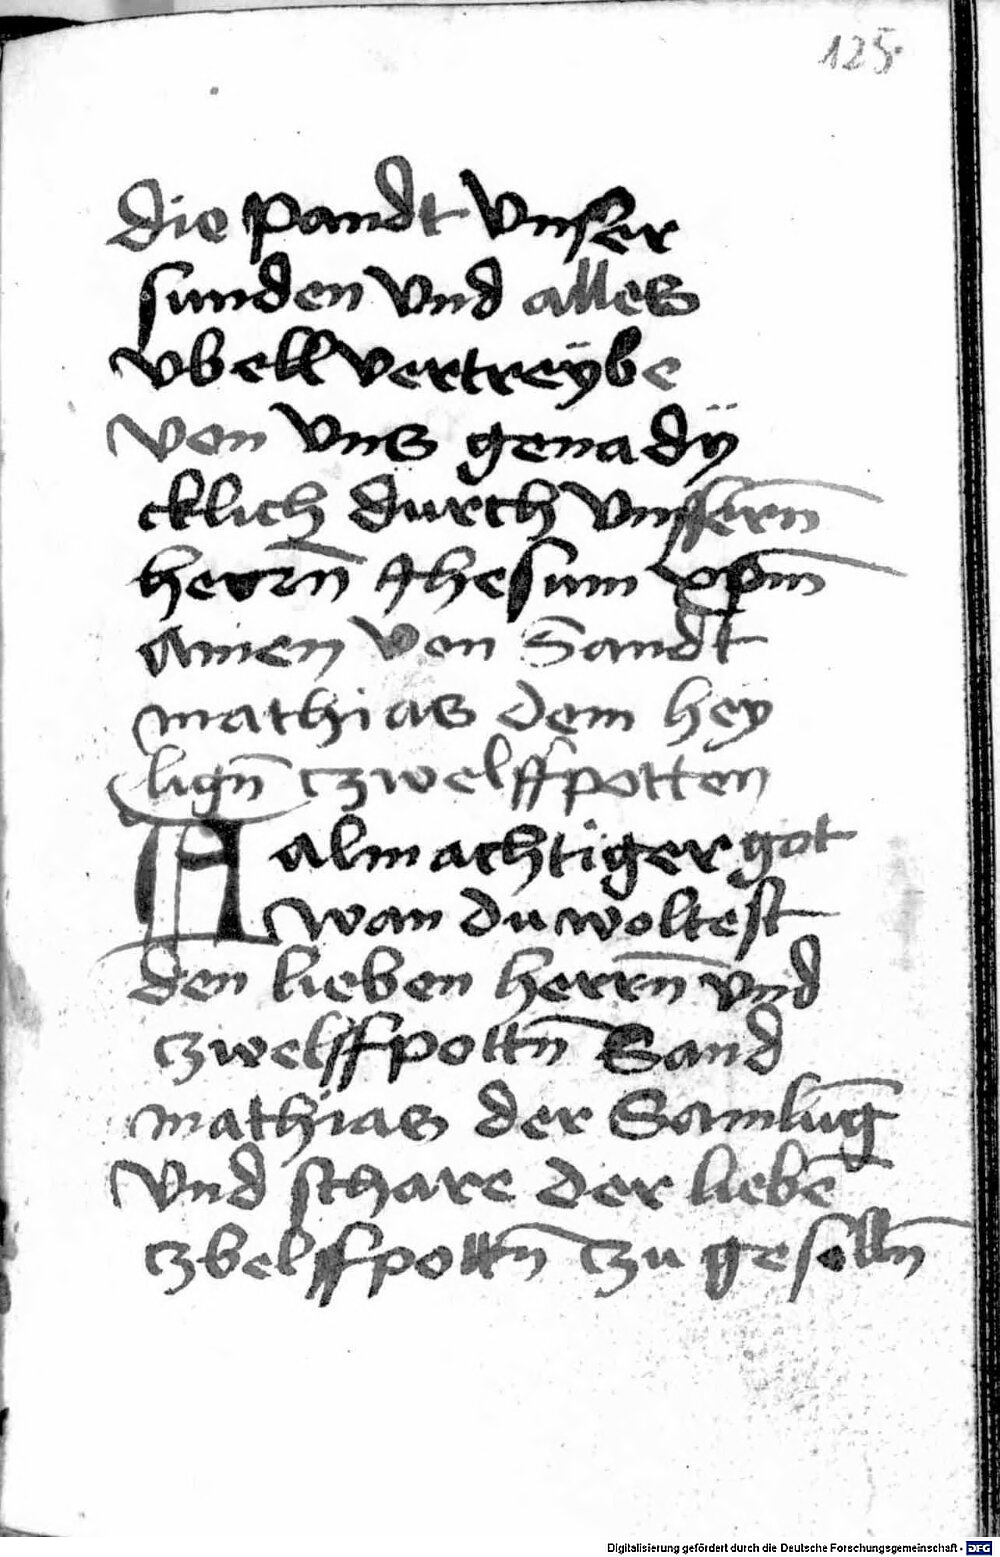 125
die pandt vnser
sunden vnd alles
vbell vertreÿbe
von vns genadÿ
cklich durch vnssern̄
herrn̄ Jhesum xp̄m
amen von Sandt
mathias dem heÿ
lign̄ czwelffpotten
A almachtiger got
wan du woltest
den lieben herrn̄ vnd
czwelffpottn̄ Sand
mathias der Samlūg
vnd schare der liebē
czbelffpottn̄ czu geselln̄
Digitalisierung gefördert durch die Deutsche Forschungsgemeinschaft - DFG